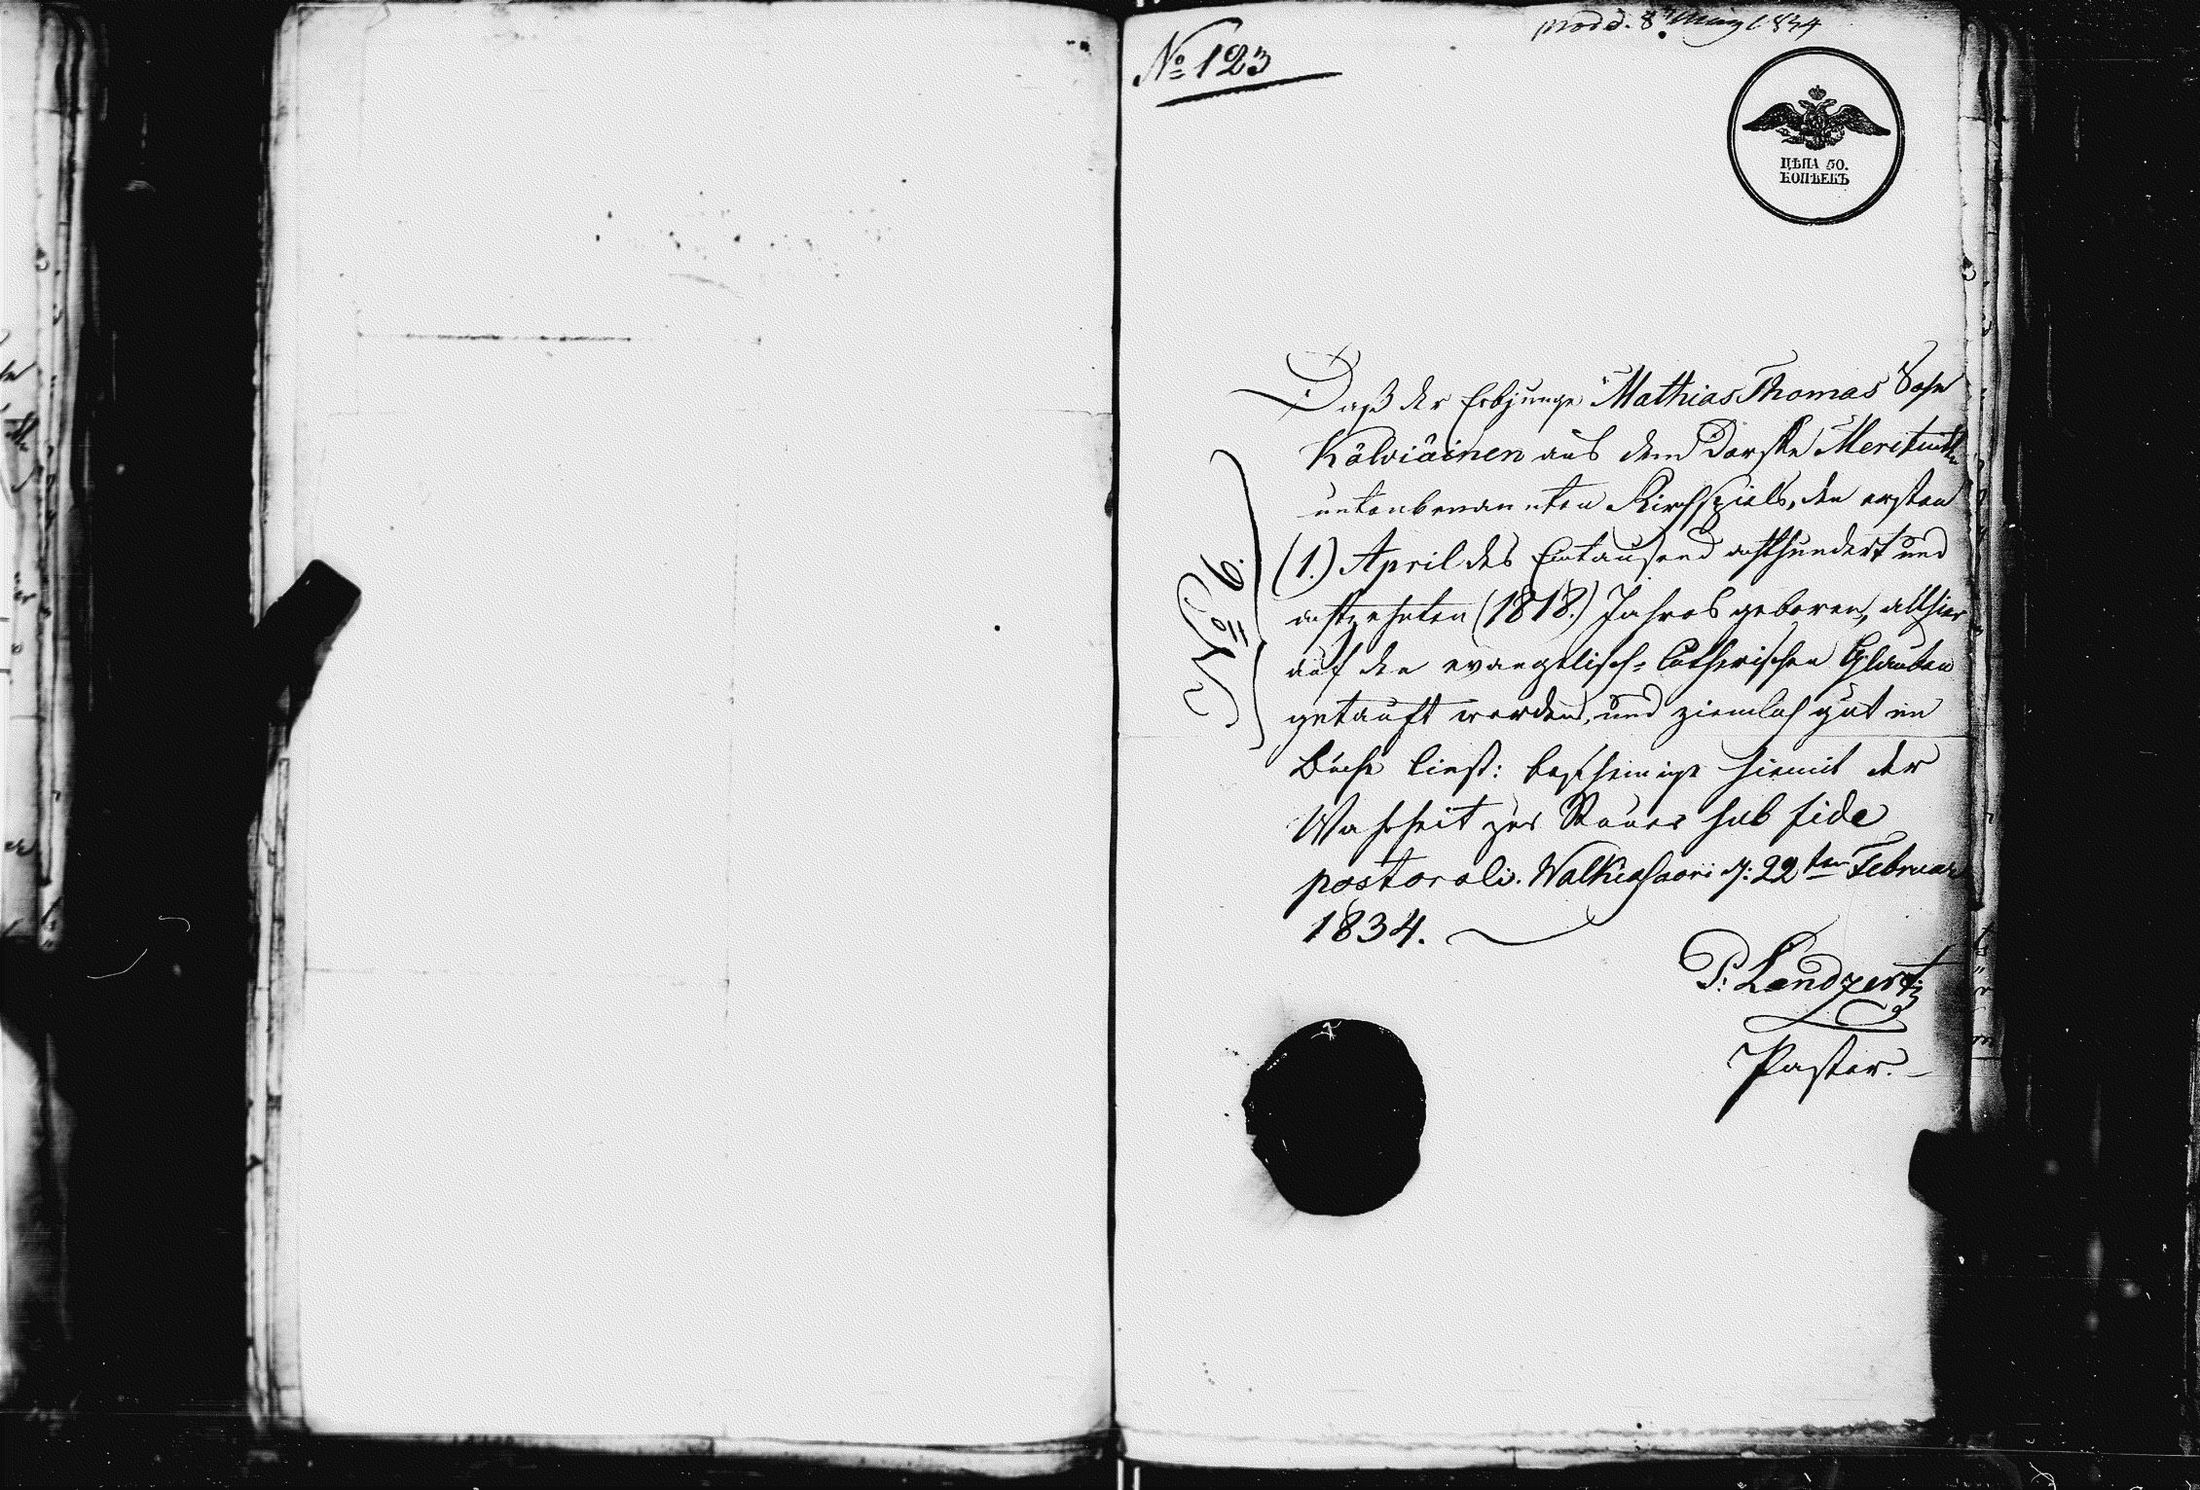 № 123
prod d. 8n März 1834
ЦѢНА 50.
КОПѢЕКЪ
Daß der Erbjunge Mathias Thomas Sohn
Kölviäinen aus dem Dorffe
untenbenannten Kirchspiels, den ersten
(1.) April des Eintausend achthundert und
achtzehnten (1818.) Jahres geboren, allhier
auf den evangelisch-Lutherischen Glauben
getauft worden, und ziemlich gut im
Buche liest: bescheinige hiemit der
Wahrheit zur Steuer sub fide
pastorali. Walkeasaari d: 22ten Februar
1834.
P: Landzert
Pastor.
№ 9.